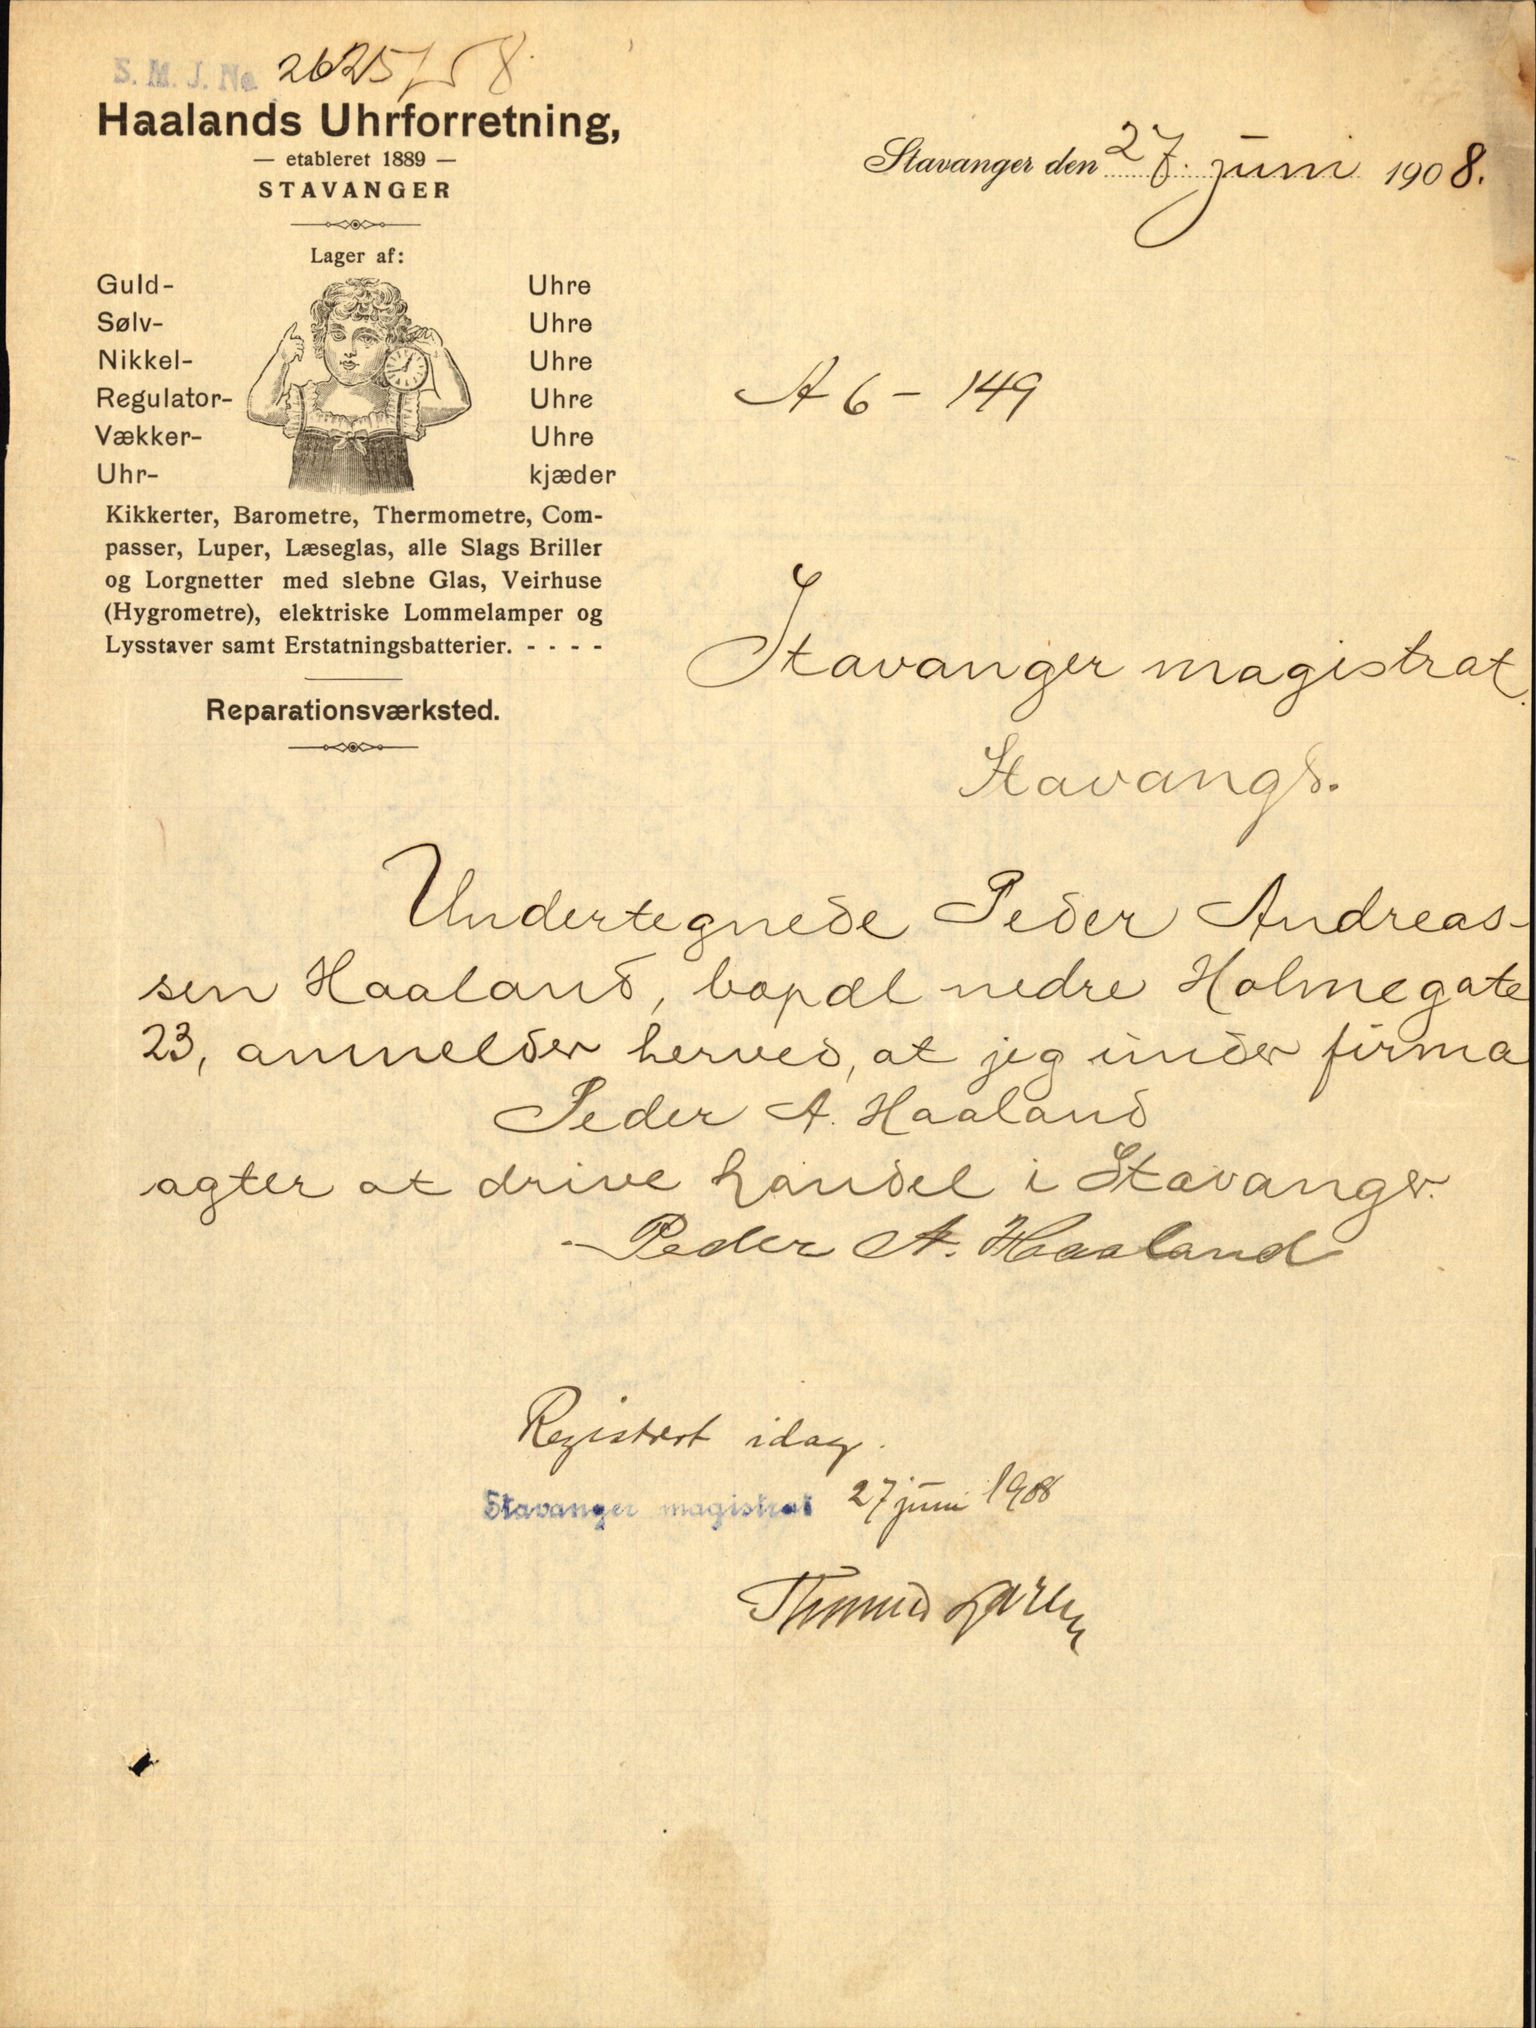 S. M. J. No 2625/08
Haalands Uhrforretning,
— etableret 1889 —
STAVANGER
Stavanger den 27. juni 1908.
Lager af:
Guld- Uhre
Sølv- Uhre
Nikkel- Uhre
Regulator- Uhre
Vækker- Uhre
Uhr- kjæder
A 6 - 149
Kikkerter, Barometre, Thermometre, Com-
passer, Luper, Læseglas, alle Slags Briller
og Lorgnetter med slebne Glas, Veirhuse
(Hygrometre), elektriske Lommelamper og
Lysstaver samt Erstatningsbatterier. - - - -
Reparationsværksted.
Stavanger magistrat.
Stavanger.
Undertegnede Peder Andreas-
sen Haaland, bopæl nedre Holmegate
23, anmelder herved, at jeg under firma
Peder A. Haaland
agter at drive handel i Stavanger.
Peder A. Haaland
Registrert idag.
Stavanger magistrat 27 juni 1908